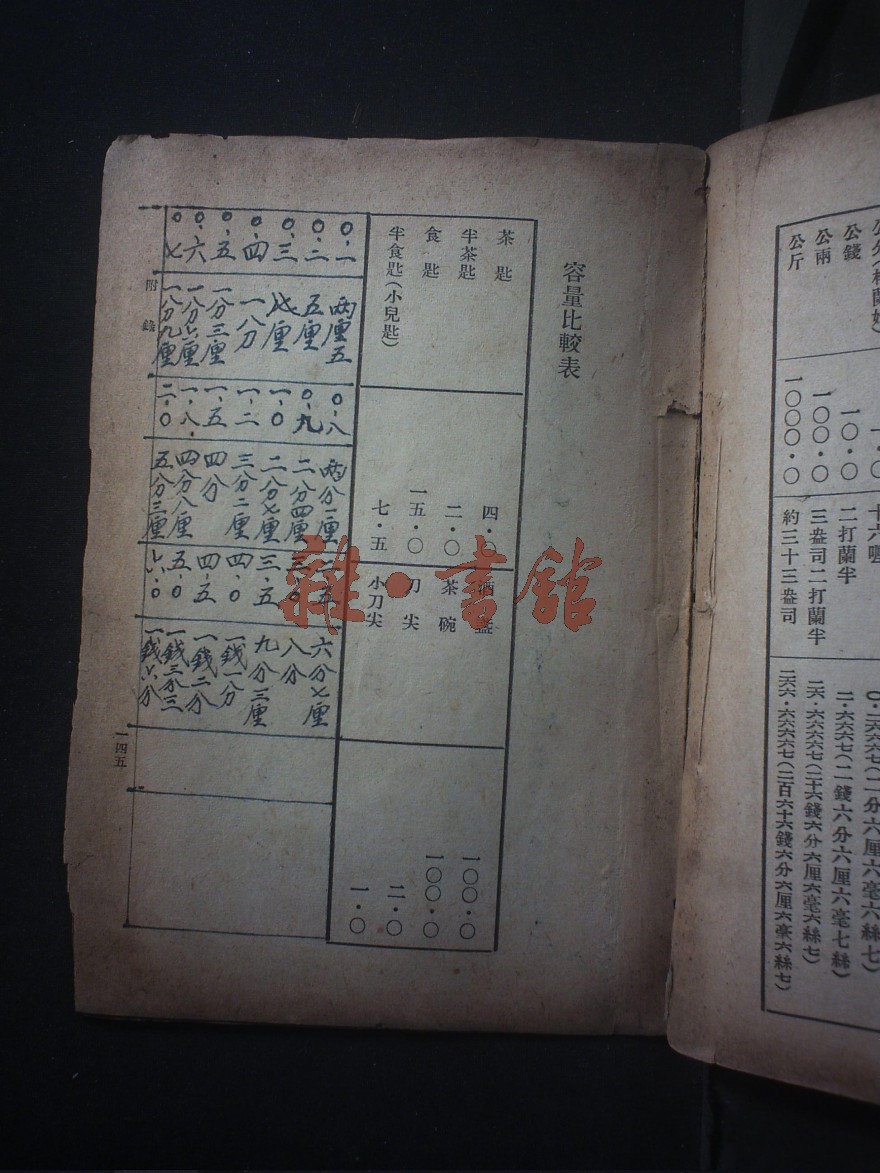 公錢 一〇·〇 二打蘭半 二·六六六七(二錢六分六厘六毫七絲)
公兩 一〇〇·〇 三盎司二打蘭半 二六·六六六六七(二十六錢六分六厘六毫六絲七)
公斤 一〇〇〇·〇 約三十三盎司 二六六·六六六六七(二百六十六錢六分六厘六毫六絲七)
容量比較表
茶匙 四·〇 酒盞 一〇〇·〇
半茶匙 二·〇 茶碗 一〇〇·〇
食匙 一五·〇 刀尖 二·〇
半食匙(小兒匙) 七·五 小刀尖 一·〇
0·一 兩厘五 0·八 兩分一厘 二·五 六分七厘
0·二 五厘 0·九 二分四厘 三·0 八分
0·三 七厘 一·0 二分七厘 三·五 九分三厘
0·四 一分 一·二 三分二厘 四·0 一錢一分
0·五 一分三厘 一·五 四分 四·五 一錢二分
0·六 一分六厘 一·八 四分八厘 五·0 一錢三分三
0·七 一分九厘 二·0 五分三厘 六·0 一錢六分
附錄
一四五
雜·書館